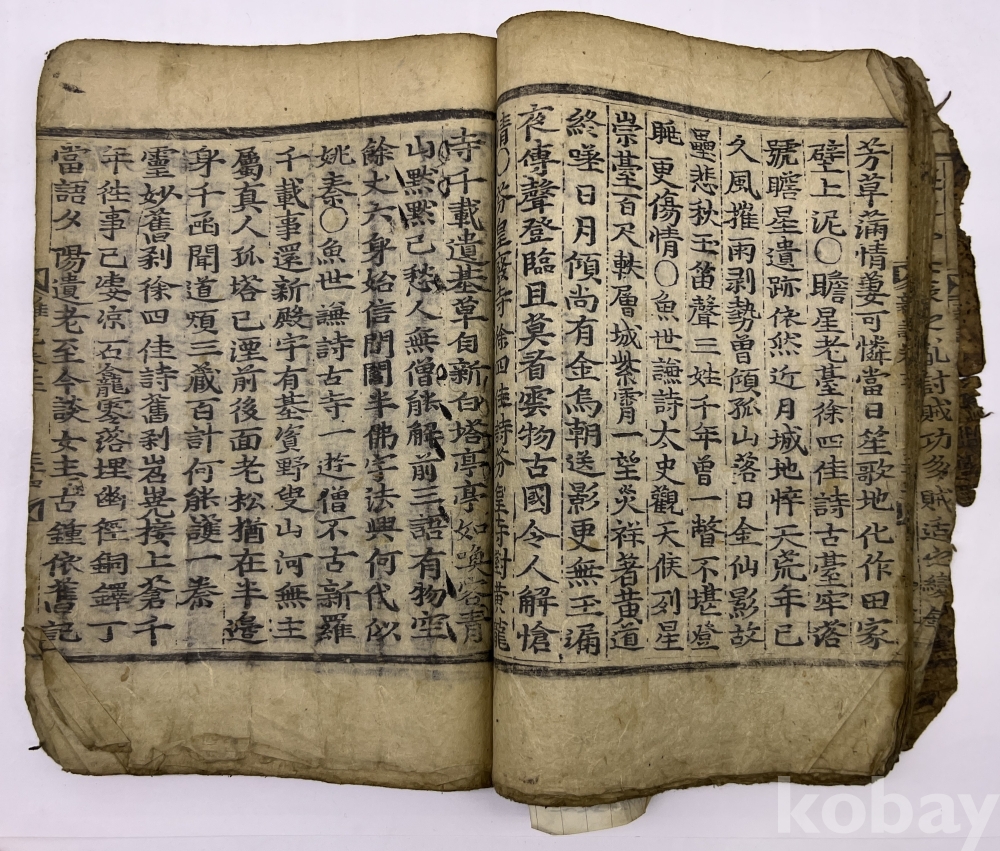 芳草滿情萋可憐當日笙歌地化作田家
壁上泥○瞻星老䑓徐四佳詩古䑓牢落
號瞻星遺跡依然近月城地悖天荒年已
久風摧雨剥勢曽傾孤山落日金仙影故
壘悲秋玉笛聲三姓千年曽一瞥不堪登
眺更傷情○魚世謙詩太史觀天候列星
崇䑓百尺軼層城紫霄一望災祥著黃道
終嘆日月傾尚有金烏朝送影更無玉漏
夜傳聲登臨且莫看雲物古國令人解愴
情○芬皇廢寺徐四佳詩芬皇寺對黃龍
寺千載遺基草自新白塔亭亭如喚客青
山黙黙已愁人無僧能解前三語有物空
餘丈六身始信閭閻半佛宇法興何代似
姚秦○魚世謙詩古寺一逰僧不古新羅
千載事還新殿宇有基資野叟山河無主
屬真人孤塔已湮前後面老松猶在半邊
身千函聞道煩三藏百計何能護一秦
靈妙舊刹徐四佳詩舊刹岧嶤接上蒼千
年徃事已凄凉石龕零落埋幽徑銅鐸丁
當語夕陽遺老至今談女主古鍾依舊記
kobay